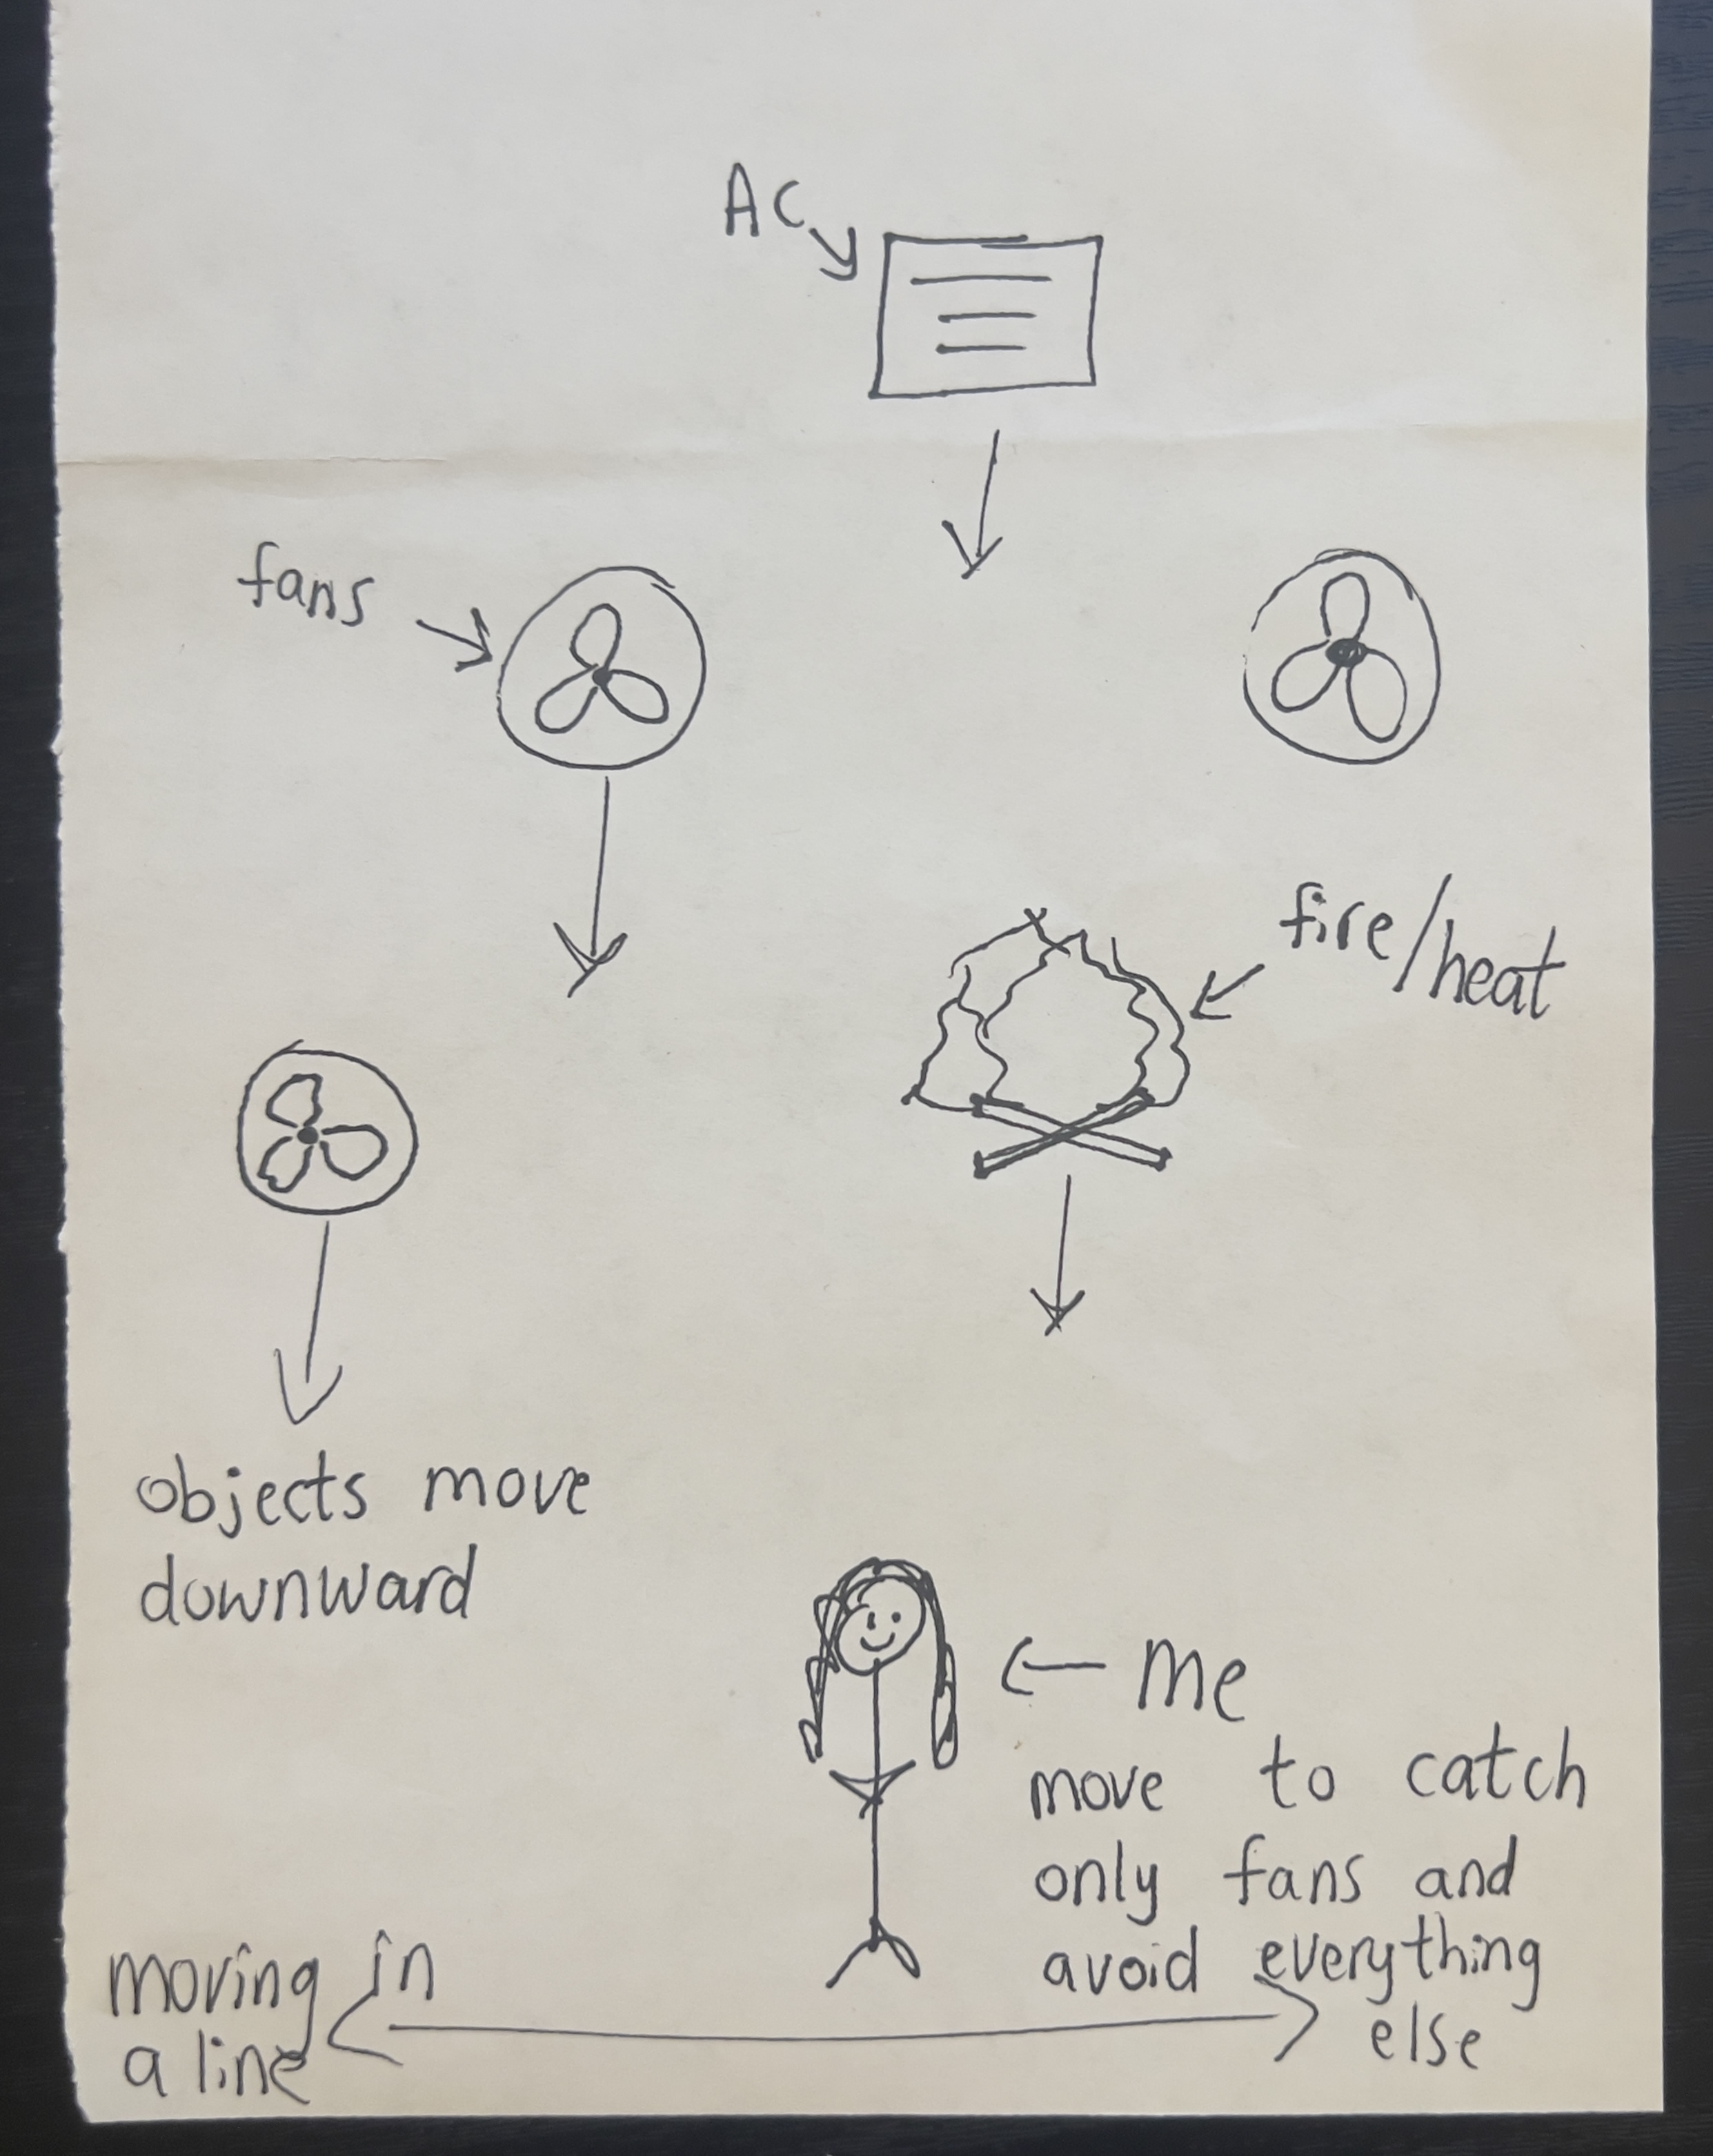 AC
fans
fire/heat
objects move
downward
me
move to catch
only fans and
avoid everything
else
moving in
a line